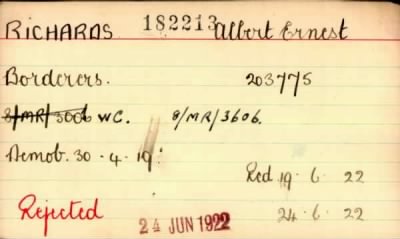 RICHARDS 182213 Albert Ernest
Borderers. 203775
8/MR/3006 W.C. 8/MR/3606.
Demob. 30 . 4 . 19.
Red 19 . 6 . 22
Rejected 24 JUN 1922 24 . 6 . 22